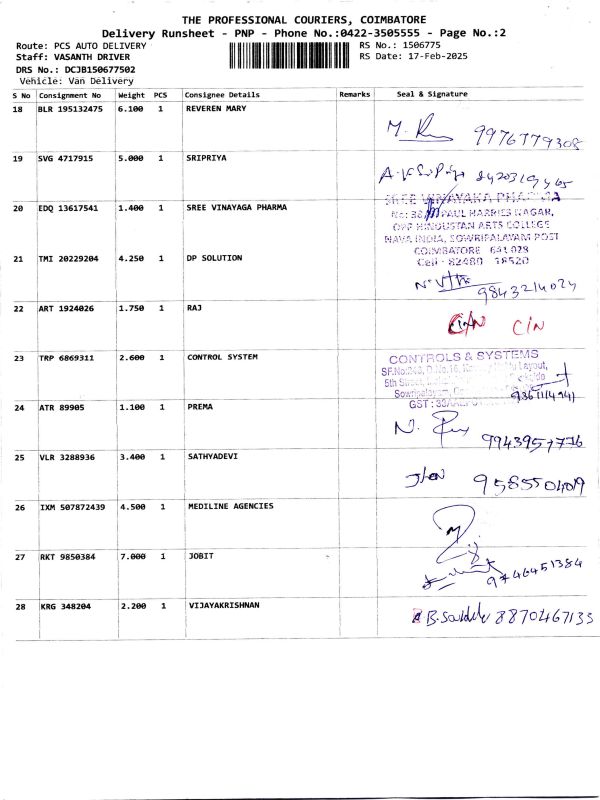 THE PROFESSIONAL COURIERS, COIMBATORE
Delivery Runsheet - PNP - Phone No.:0422-3505555 - Page No.:2
Route: PCS AUTO DELIVERY RS No.: 1506775
Staff: VASANTH DRIVER RS Date: 17-Feb-2025
DRS No.: DCJB150677502
Vehicle: Van Delivery
S No Consignment No Weight PCS Consignee Details Remarks Seal & Signature
18 BLR 195132475 6.100 1 REVEREN MARY
9976779308
19 SVG 4717915 5.000 1 SRIPRIYA
20 EDQ 13617541 1.400 1 SREE VINAYAGA PHARMA
SREE VINAYAKA PHARMA
PAUL HARRIES NAGAR,
OPP HINDUSTAN ARTS COLLEGE
NAVA INDIA, SOWRIPALAYAM POST
COIMBATORE 641 028
Cell - 82480 18520
21 TMI 20229204 4.250 1 DP SOLUTION
9843214024
22 ART 1924026 1.750 1 RAJ
C/N C/N
23 TRP 6869311 2.600 1 CONTROL SYSTEM
CONTROLS & SYSTEMS
5th Street,
GST :
24 ATR 89905 1.100 1 PREMA
9943957776
25 VLR 3288936 3.400 1 SATHYADEVI
9585504019
26 IXM 507872439 4.500 1 MEDILINE AGENCIES
27 RKT 9850384 7.000 1 JOBIT
9746451384
28 KRG 348204 2.200 1 VIJAYAKRISHNAN
8870467133